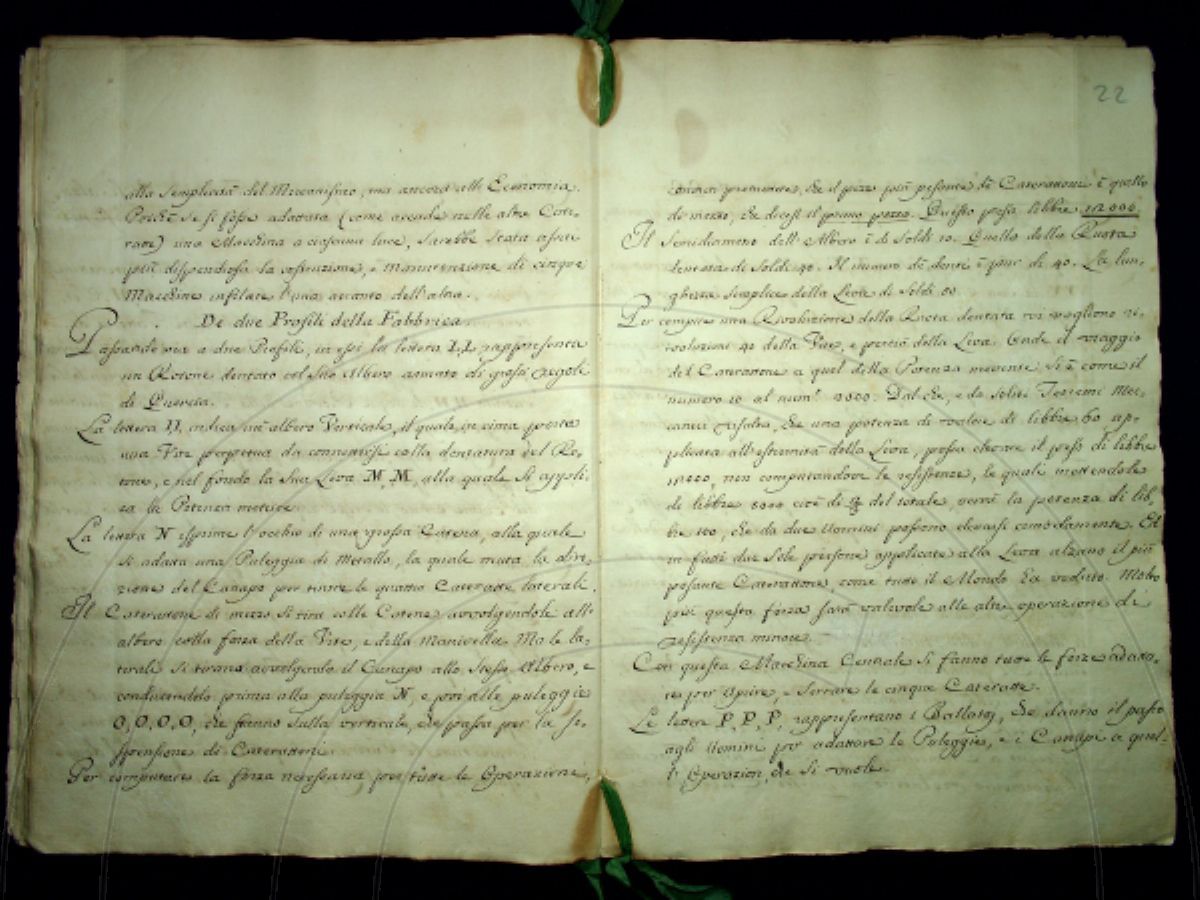 alla semplicità del Meccanismo, ma ancora all' Economia.
Poichè se si fosse adattata (come accade nelle altre Cate-
ratte) una Macchina a ciascuna luce, sarebbe stata assai
più dispendiosa la costruzione, e manutenzione di cinque
Macchine infilate l'una accanto dell'altra.
De due Profili della Fabbrica.
Passando ora a due Profili, in essi la lettera I,I, rappresenta
un Rotone dentato col suo Albero armato di grossi regoli
di Quercia.
La lettera II, indica un'albero Verticale, il quale in cima porta
una Vite perpetua da connettersi colla dentatura del Ro-
tone, e nel fondo la sua Leva M, M, alla quale si appli-
ca la Potenza motrice.
La lettera N esprime l'occhio di una grossa Catena, alla quale
si adatta una Puleggia di Metallo, la quale muta la dire-
zione del Canapo per tirare le quattro Cateratte laterali.
Il Caterattone di mezzo si tira colle Catene avvolgendole all'
albero colla forza della Vite, e della manivella. Ma le la-
terali si tirano avvolgendo il Canapo allo stesso Albero, e
conducendolo prima alla puleggia N, e poi alle pulegge
O, O, O, O, che stanno sulla verticale, che passa per la so-
spensione di Caterattoni.
Per computare la forza necessaria per tutte le Operazioni,
22
premettere, che il pezzo più pesante de Caterattoni è quello
di mezzo, che dicesi il primo pezzo. Questo pesa libbre 12000
Il Semidiametro dell' Albero è di Soldi 10. Quello della Ruota
dentata di Soldi 40. Il numero de denti è pur di 40. La lun-
ghezza semplice della Leva di Soldi 50
Per compire una Rivoluzione della Ruota dentata vi vogliono ri-
voluzioni 40 della Vite, e perciò della Leva. Onde il viaggio
del Caterattone a quel della Potenza movente si è come il
numero 10 al num.º 2000. Dal che, e da soliti Teoremi Mec-
canici risulta, che una potenza di valore di libbre 60 ap-
plicata all'estremità della Leva, possa elevare il peso di libbre
12000, non computandovi le resistenze, le quali mettendole
di libbre 8000 cioè di del totale verrà la potenza di lib-
bre 100, che da due Uomini possono elevarsi comodamente. Ed
in fatti due sole persone applicate alla Leva alzano il più
pesante Caterattone, come tutto il Mondo ha veduto. Molto
più questa forza sarà valevole alle altre operazione di
resistenza minore.
Con questa Macchina Centrale si fanno tutte le forze adatta-
te per Aprire, e serrare le cinque Cateratte.
Le lettere P, P, P, rappresentano i Ballatoj, che danno il passo
agli Uomini per adattare le Pulegge, e i Canapi a qual-
Operazion, che si vuole.